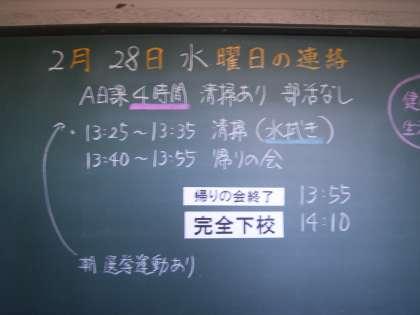 2月 28日 水曜日の連絡
A日課4時間 清掃あり 部活なし
・13:25~13:35 清掃(水拭き)
13:40~13:55 帰りの会
帰りの会終了 13:55
完全下校 14:10
朝 選挙運動あり
健
生